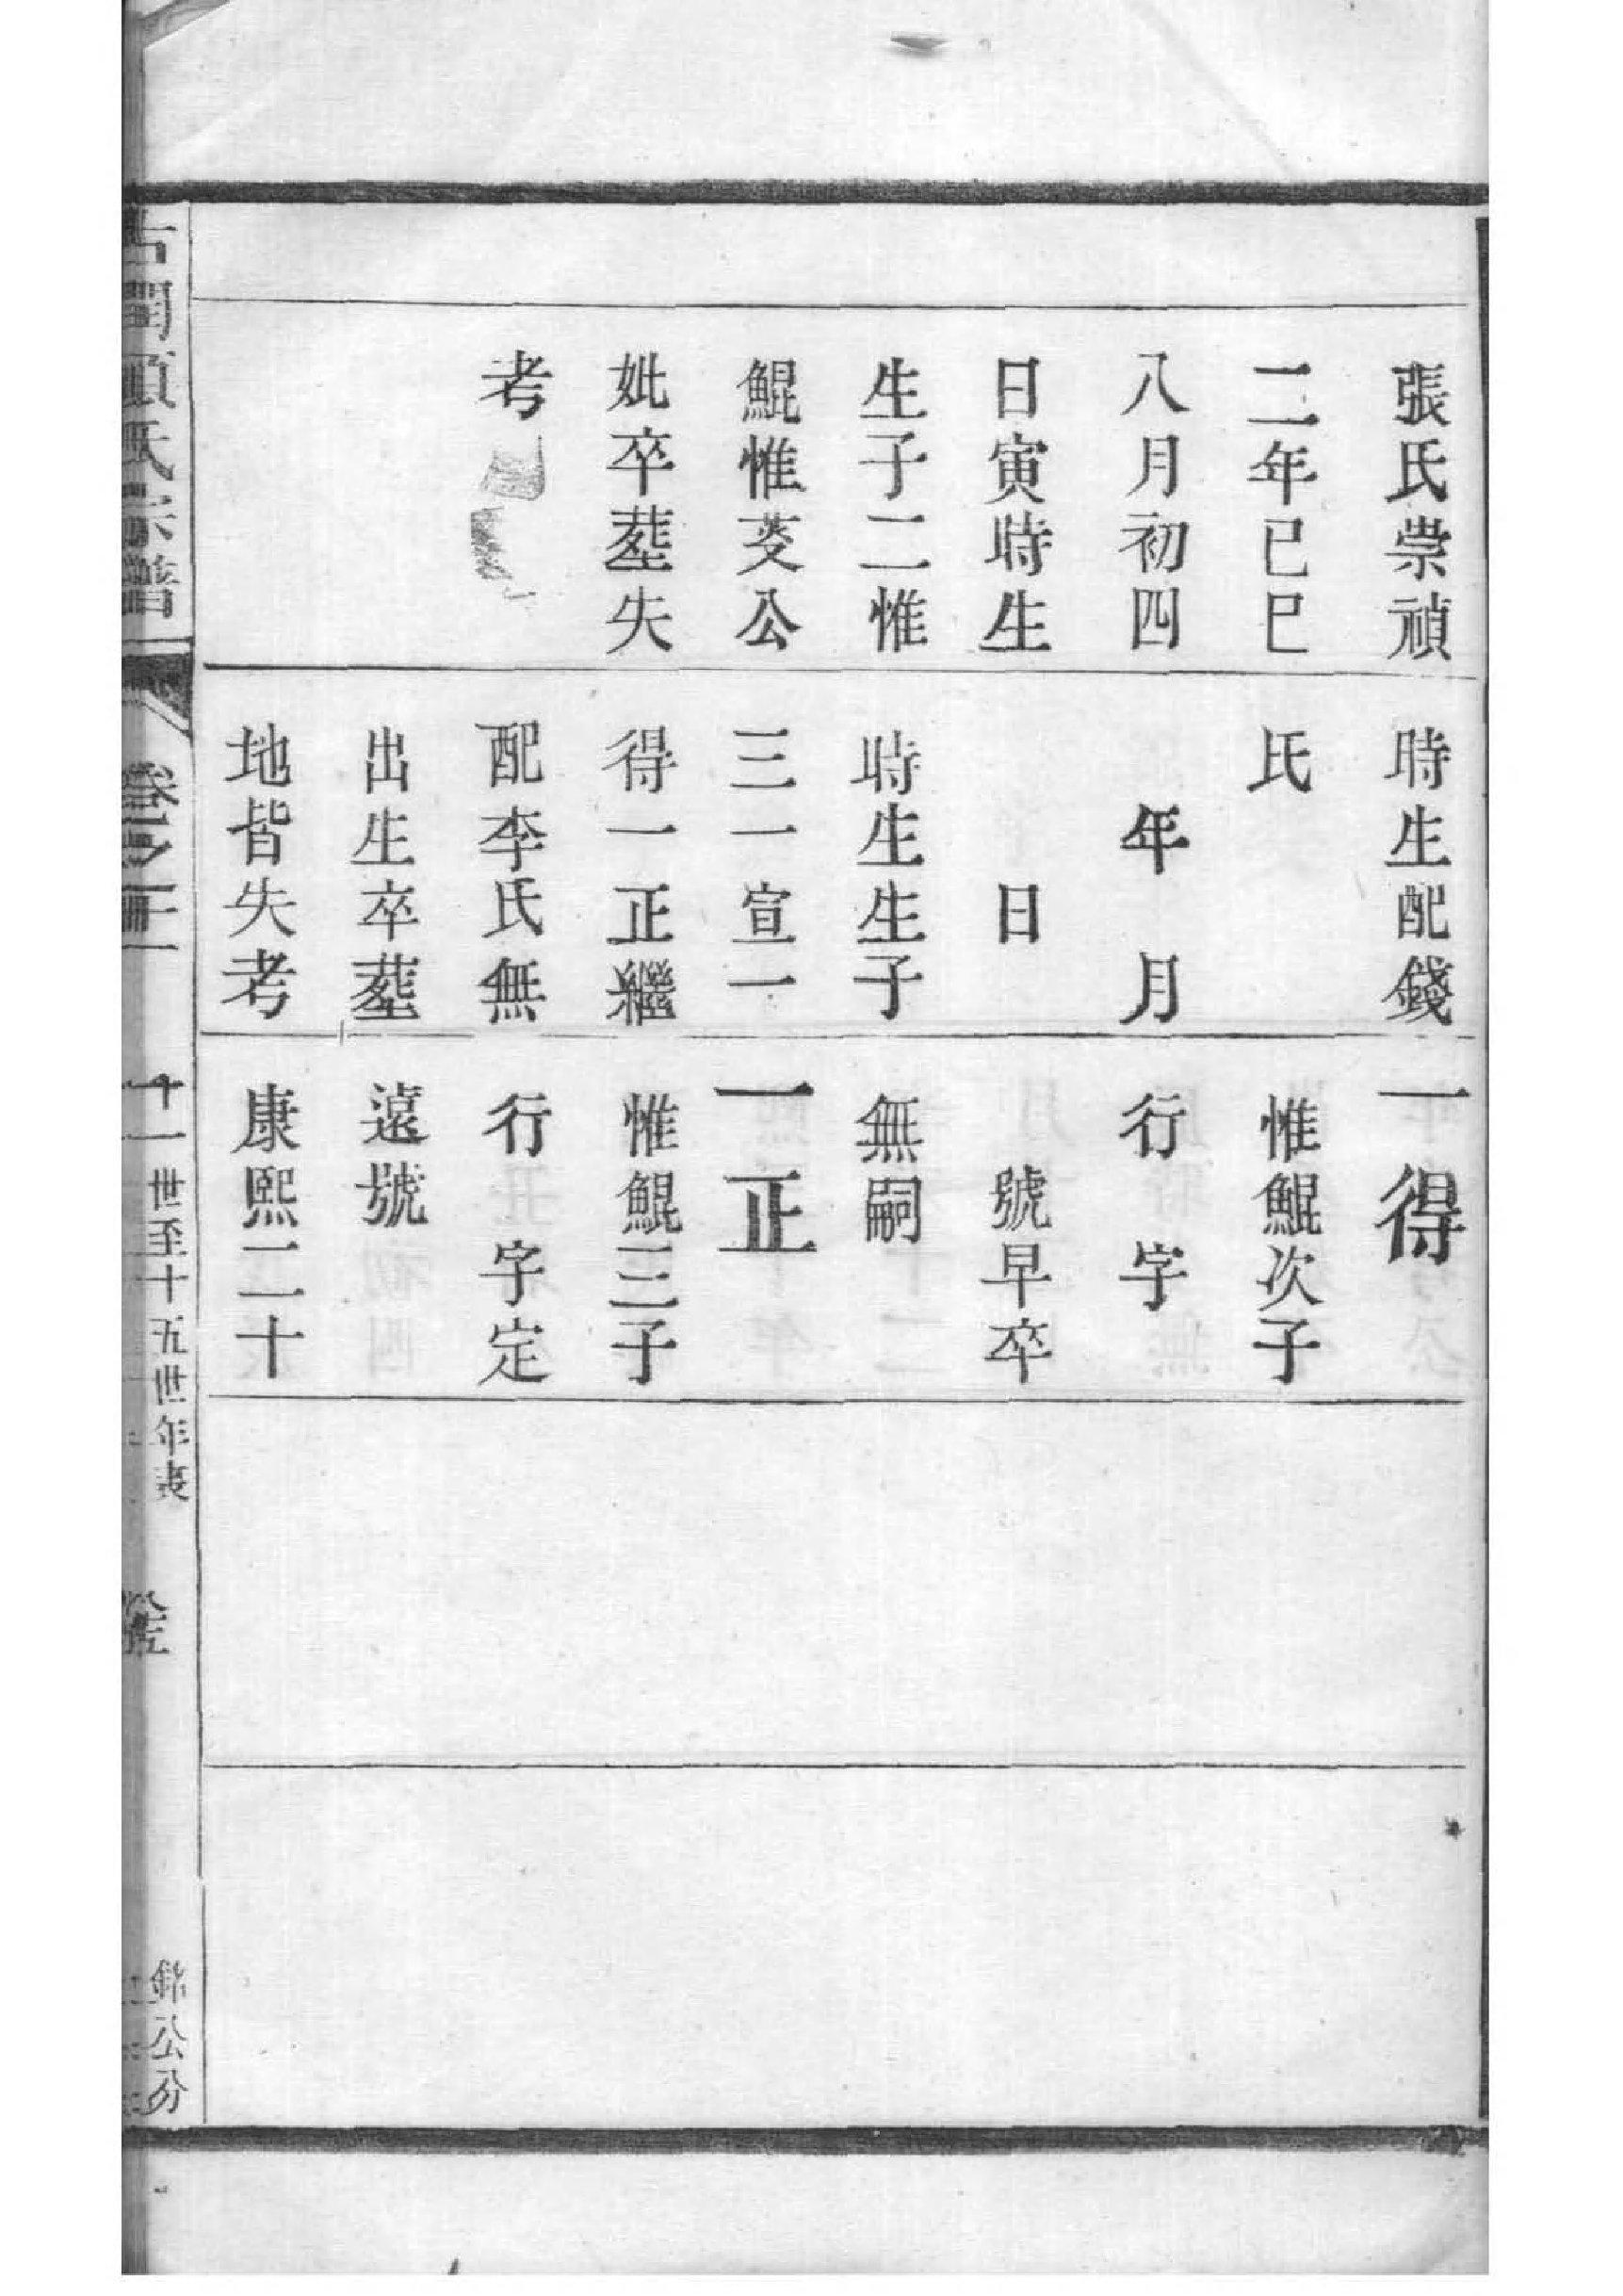 張氏崇禎
二年已巳
八月初四
日寅時生
生子二惟
鯤惟芰公
妣卒塟失
考
時生配錢
氏
年月
日
時生生子
三一宣一
得一正繼
配李氏無
出生卒塟
地皆失考
一得
惟鯤次子
行字
號早卒
無嗣
一正
惟鯤三子
行字定
遠號
康熙二十
氏宗譜
卷之
十一世至十五世年表
錦公分